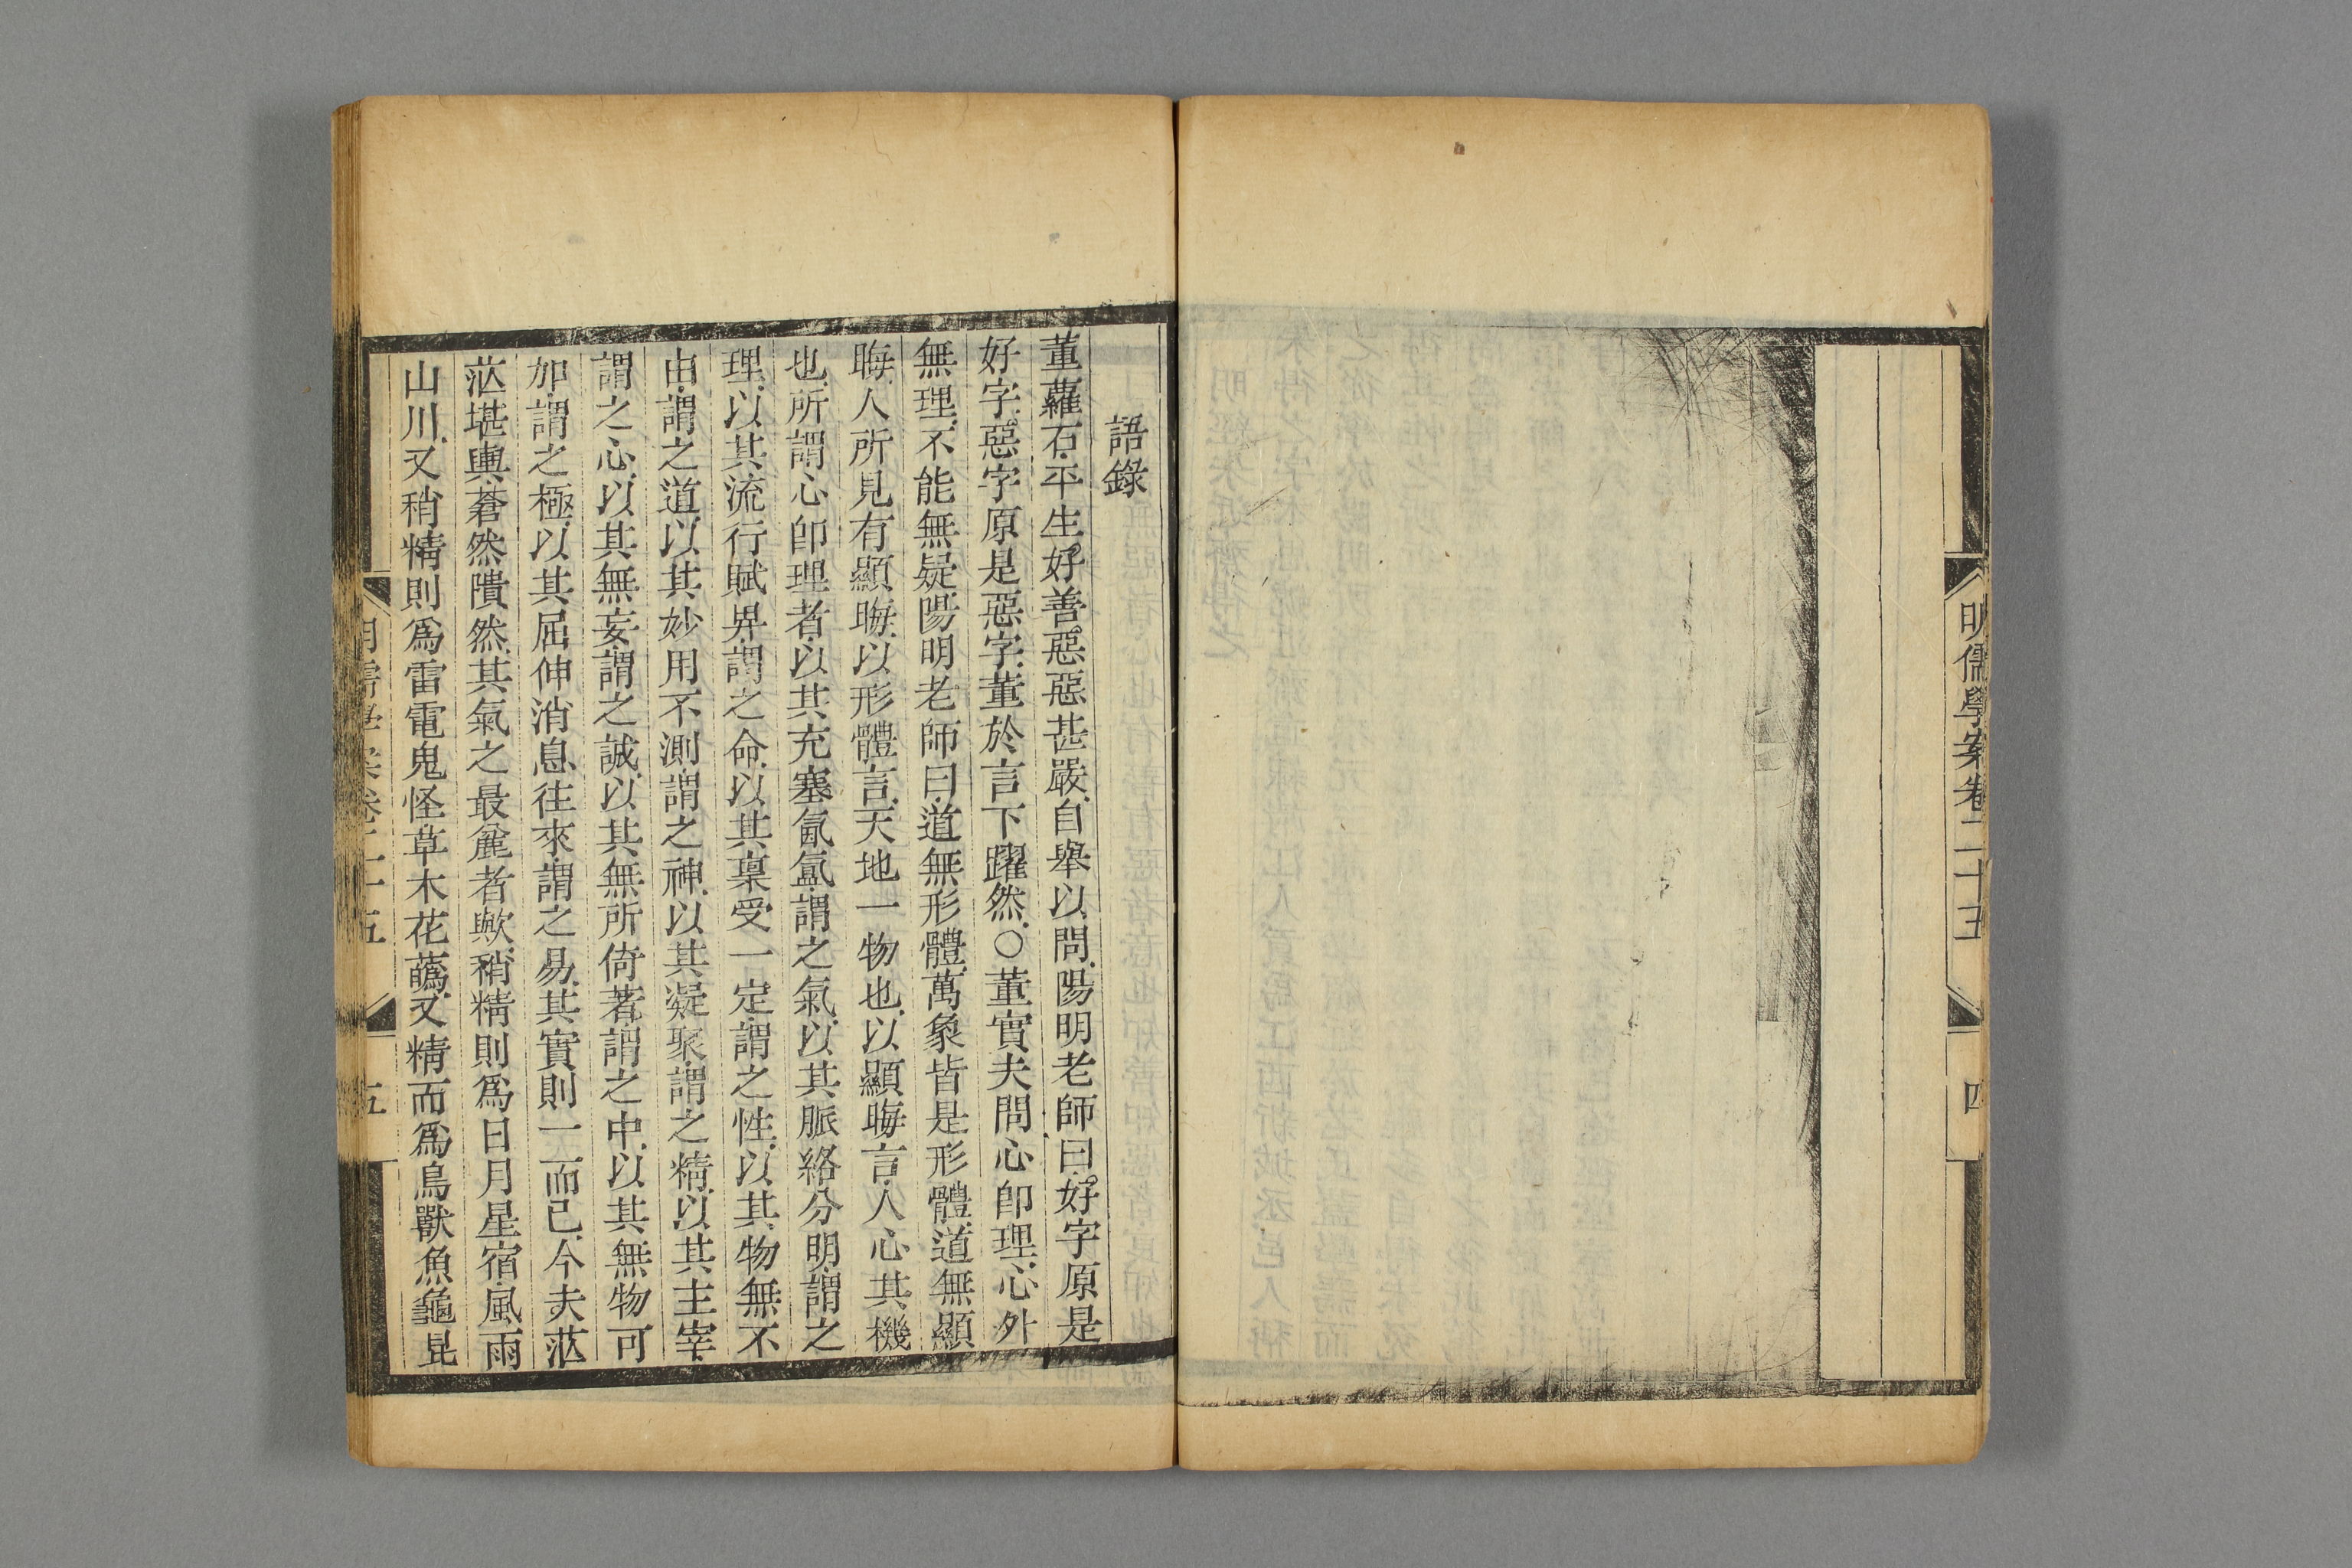 明儒學案卷二十五
四
語錄
董蘿石平生好善惡惡甚嚴自舉以問陽明老師曰好字原是
好字惡字原是惡字董於言下躍然〇董實夫問心卽理心外
無理不能無疑陽明老師曰道無形體萬象皆是形體道無顯
晦人所見有顯晦以形體言天地一物也以顯晦言人心其機
也所謂心卽理者以其充塞氤氳謂之氣以其脈絡分明謂之
理以其流行賦畀謂之命以其稟受一定謂之性以其物無不
由謂之道以其妙用不測謂之神以其凝聚謂之精以其主宰
謂之心以其無妄謂之誠以其無所倚著謂之中以其無物可
加謂之極以其屈伸消息往來謂之易其實則一而已今夫茫
茫堪輿蒼然隤然其氣之最麄者歟稍精則爲日月星宿風雨
山川又稍精則爲雷電鬼怪草木花蘤又精而爲鳥獸魚龜昆
明儒學案卷二十五
五